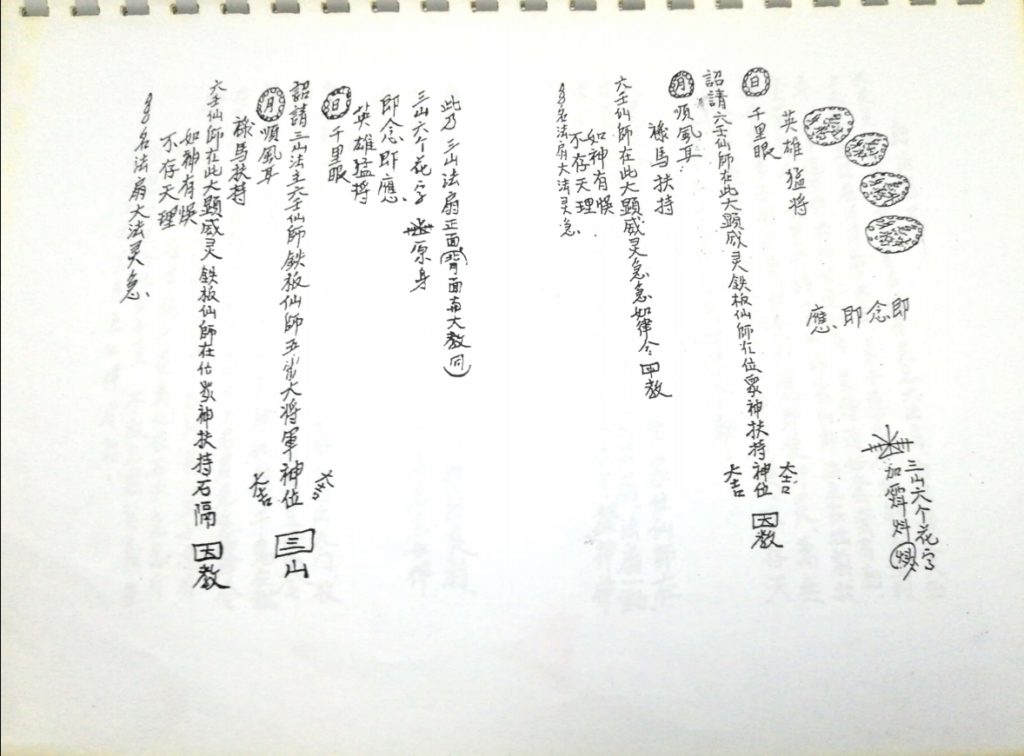 即念即應
三山六个花字
加
英雄猛将
日 千里眼
大吉
詔請六壬仙師在此大顕威灵鉄板仙師在位眾神扶持神位
大吉
教
月 順風耳
祿馬扶持
六壬仙師在此大顕威灵急急如律令 教
如神有悮
不存天理
名法扇大法灵急
此乃 三山法扇正面(背面与大教同)
三山六个花字 原身
即念即應
英雄猛将
日 千里眼
詔請三山法主六壬仙師鉄板仙師五雷大将軍神位
大吉
三山
月 順風耳
祿馬扶持
六壬仙師在此大顕威灵鉄板仙師在位眾神扶持石隔
教
如神有悮
不存天理
名法扇大法灵急